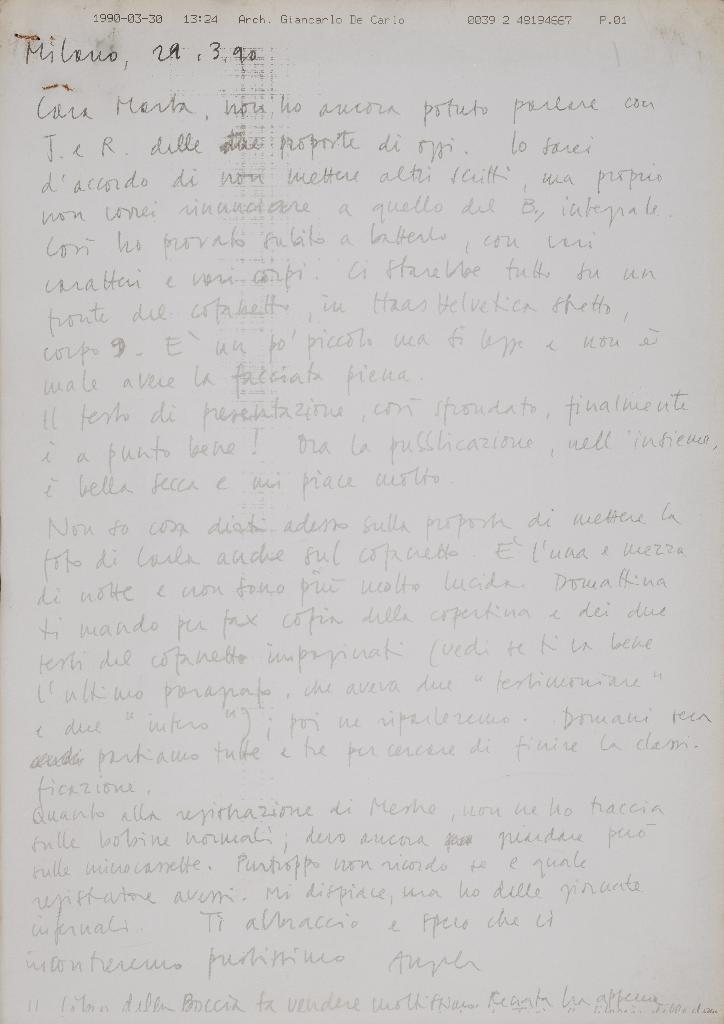 1990-03-30 13:24 Arch. Giancarlo De Carlo 0039 2 48194667 P.01
Milano, 29.3.90
Cara Marta, non ho ancora potuto parlare con
J. e R. delle due proposte di oggi. Io sarei
d'accordo di non mettere altri scritti, ma proprio
non vorrei rinunciare a quello del B., integrale.
Così ho provato subito a batterlo, con vari
caratteri e vari corpi. Ci starebbe tutto su un
fronte del cofanetto, in Haas Helvetica stretto,
corpo 9. È un po' piccolo ma si legge e non è
male avere la facciata piena.
Il testo di presentazione, così sfrondato, finalmente
è a punto bene! Ora la pubblicazione, nell'insieme,
è bella secca e mi piace molto.
Non so cosa dirti adesso sulla proposta di mettere la
foto di Carla anche sul cofanetto. È l'una e mezza
di notte e non sono più molto lucida. Domattina
ti mando per fax copia della copertina e dei due
testi del cofanetto impaginati (vedi se ti va bene
l'ultimo paragrafo, che aveva due "testimoniare"
e due "intero"); poi ne riparleremo. Domani sera
partiamo tutte e tre per cercare di finire la classi-
ficazione.
Quanto alla registrazione di Mestre, non ne ho traccia
sulle bobine normali; devo ancora guardare però
sulle microcassette. Purtroppo non ricordo se e quale
registratore avessi. Mi dispiace, ma ho delle giornate
infernali. Ti abbraccio e spero che ci
incontreremo prestissimo Angela
Il libro della Boccia fa vendere moltissimo. Renata ha appena